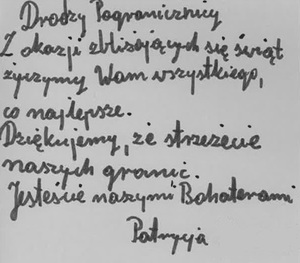 Drodzy Pogranicznicy
Z okazji zbliżających się świąt
życzymy Wam wszystkiego,
co najlepsze.
Dziękujemy, że strzeżecie
naszych granic.
Jesteście naszymi Bohaterami
Patrycja